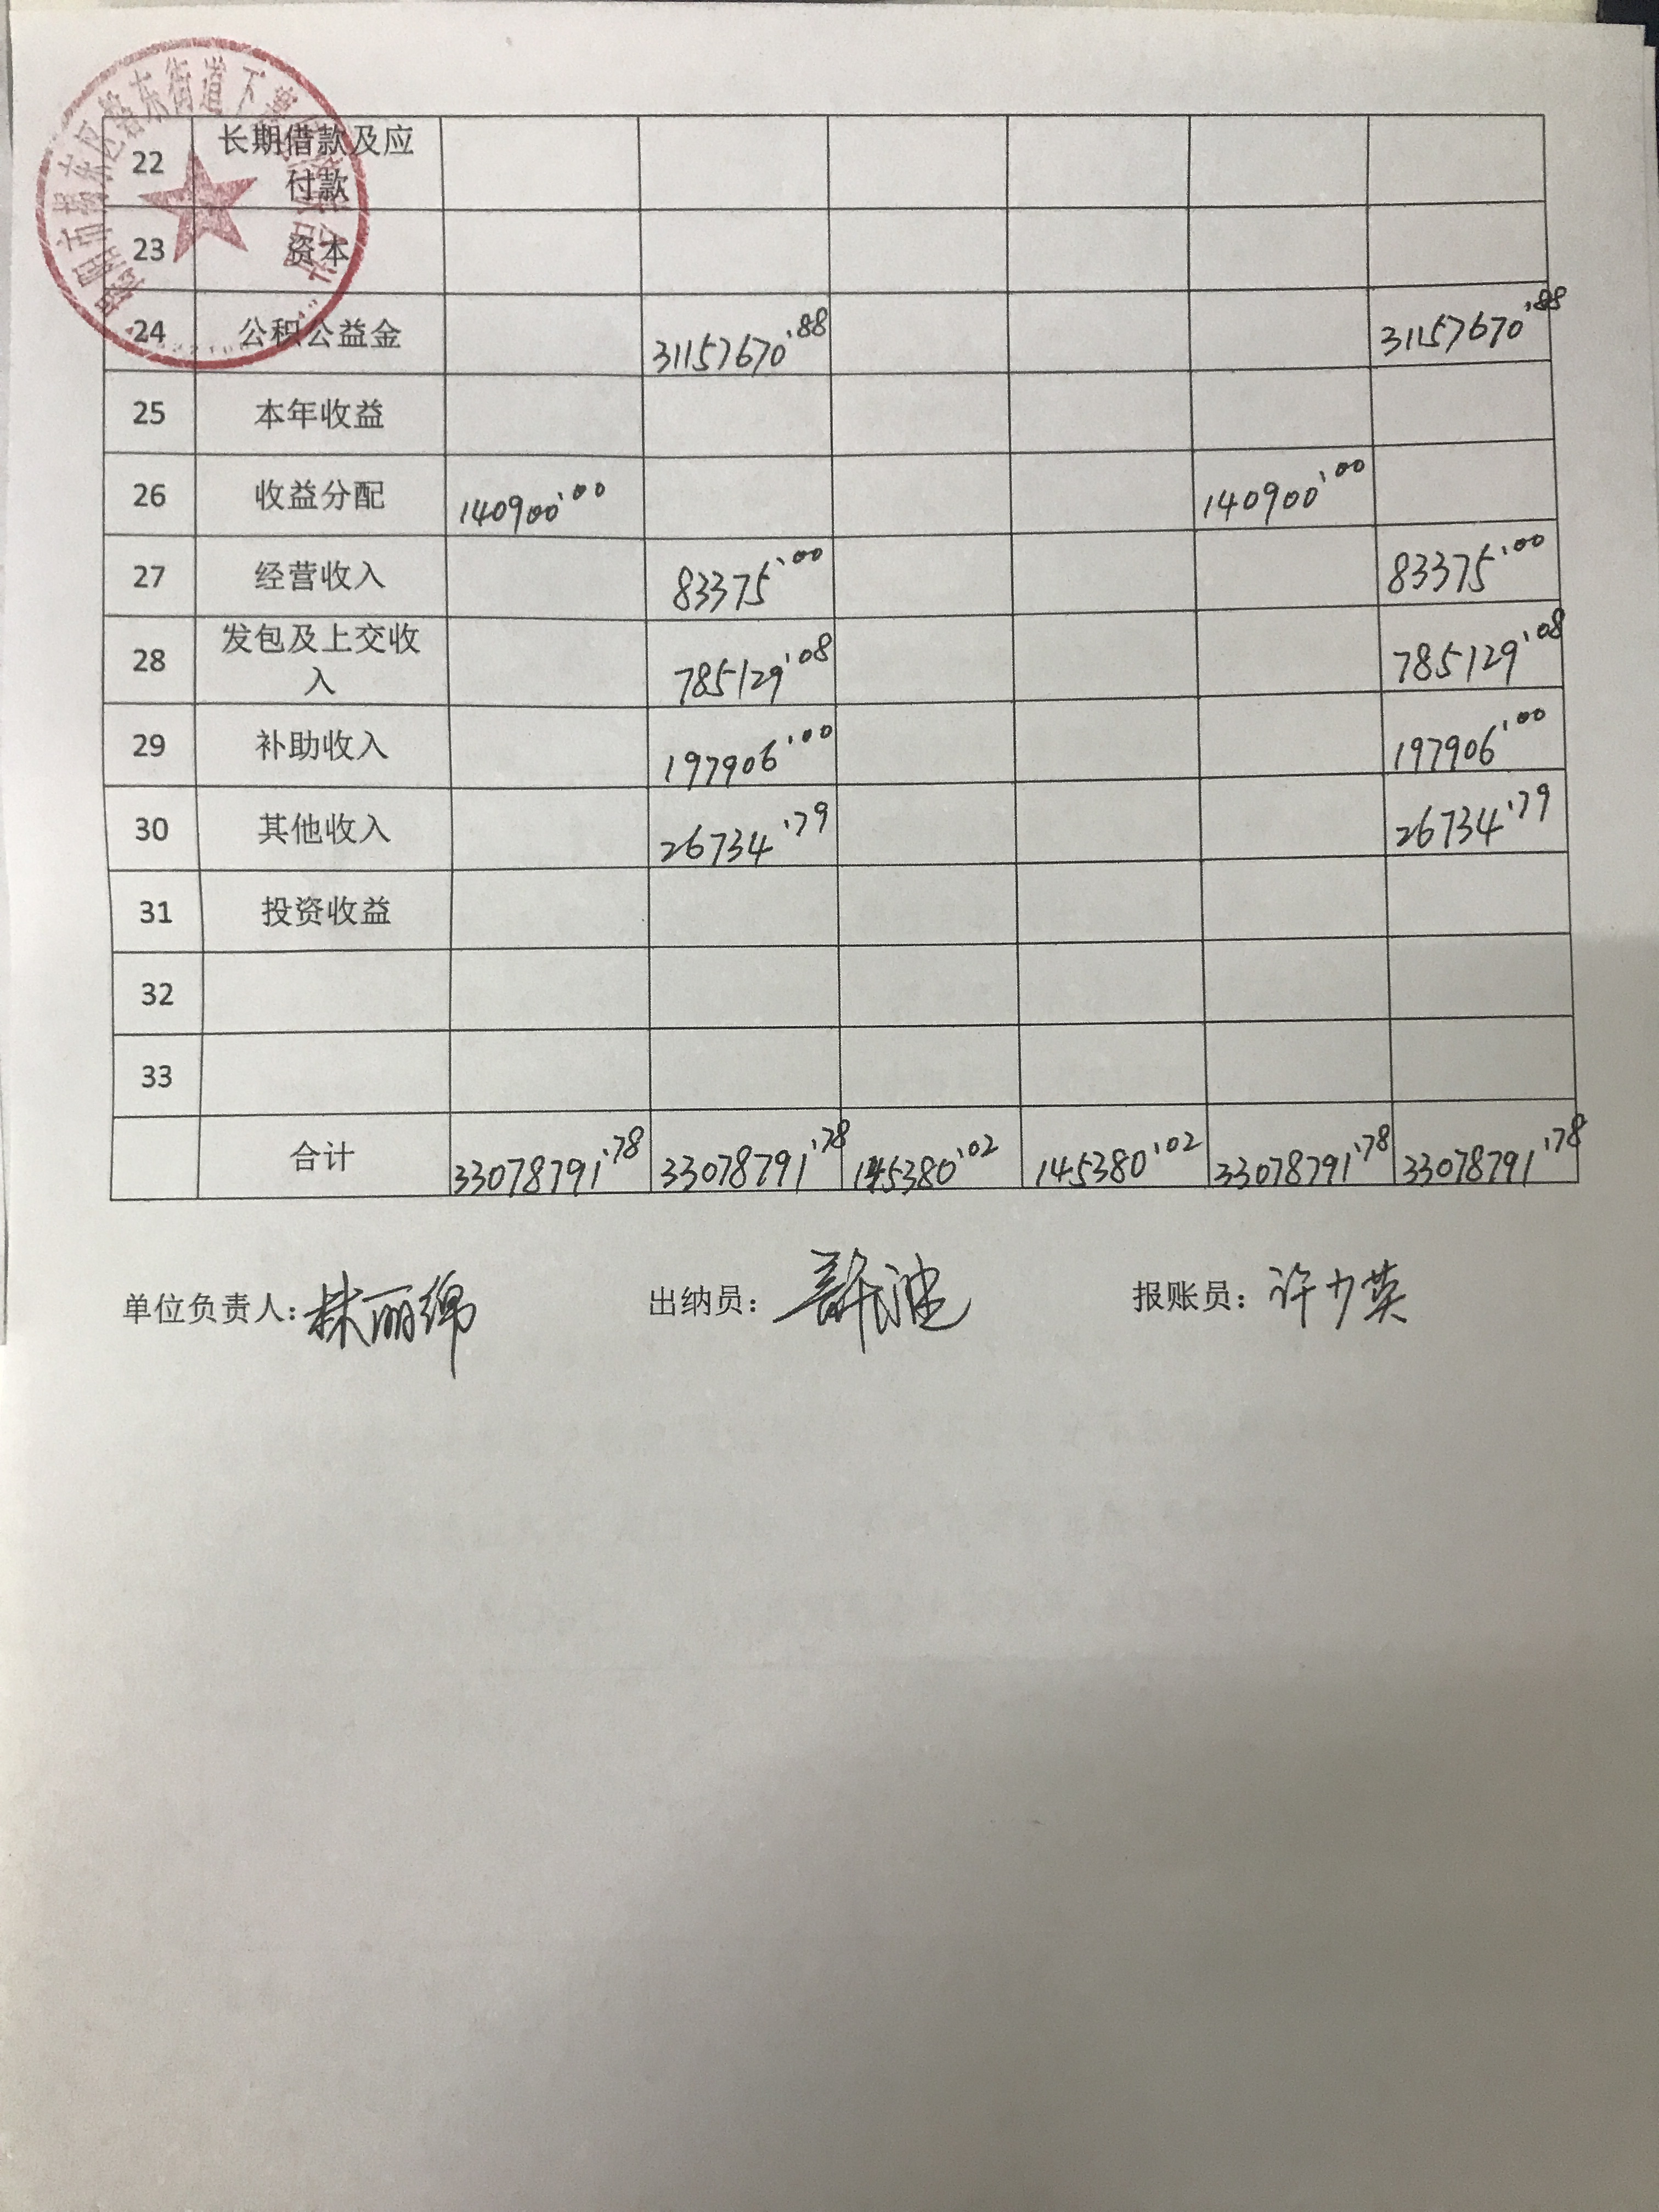 22 长期借款及应
付款
23 资本
24 公积公益金 31157670.88 31157670.88
25 本年收益
26 收益分配 140900.00 140900.00
27 经营收入 83375.00 83375.00
28 发包及上交收
入 785129.08 785129.08
29 补助收入 197906.00 197906.00
30 其他收入 26734.79 26734.79
31 投资收益
32
33
合计 33078791.78 33078791.78 145380.02 145380.02 33078791.78 33078791.78
单位负责人: 林丽绵 出纳员: 报账员: 许少英
东街道下